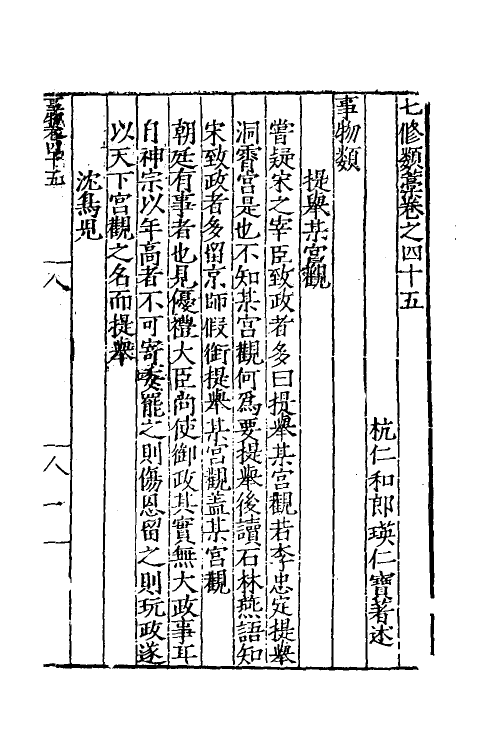 七修類藁卷之四十五
杭仁和郎瑛仁寶著述
事物類
提舉某宮觀
嘗疑宋之宰臣致政者多曰提舉某宮觀若李忠定提舉
洞霄宮是也不知某宮觀何爲要提舉後讀石林燕語知
宋致政者多留京師假銜提舉某宮觀蓋某宮觀
朝廷有事者也見優禮大臣尚使御政其實無大政事耳
自神宗以年高者不可寄委罷之則傷恩留之則玩政遂
以天下宮觀之名而提舉
沈鳧児
卷四十五